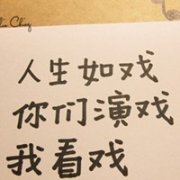 人生如戏
你们演戏
我看戏